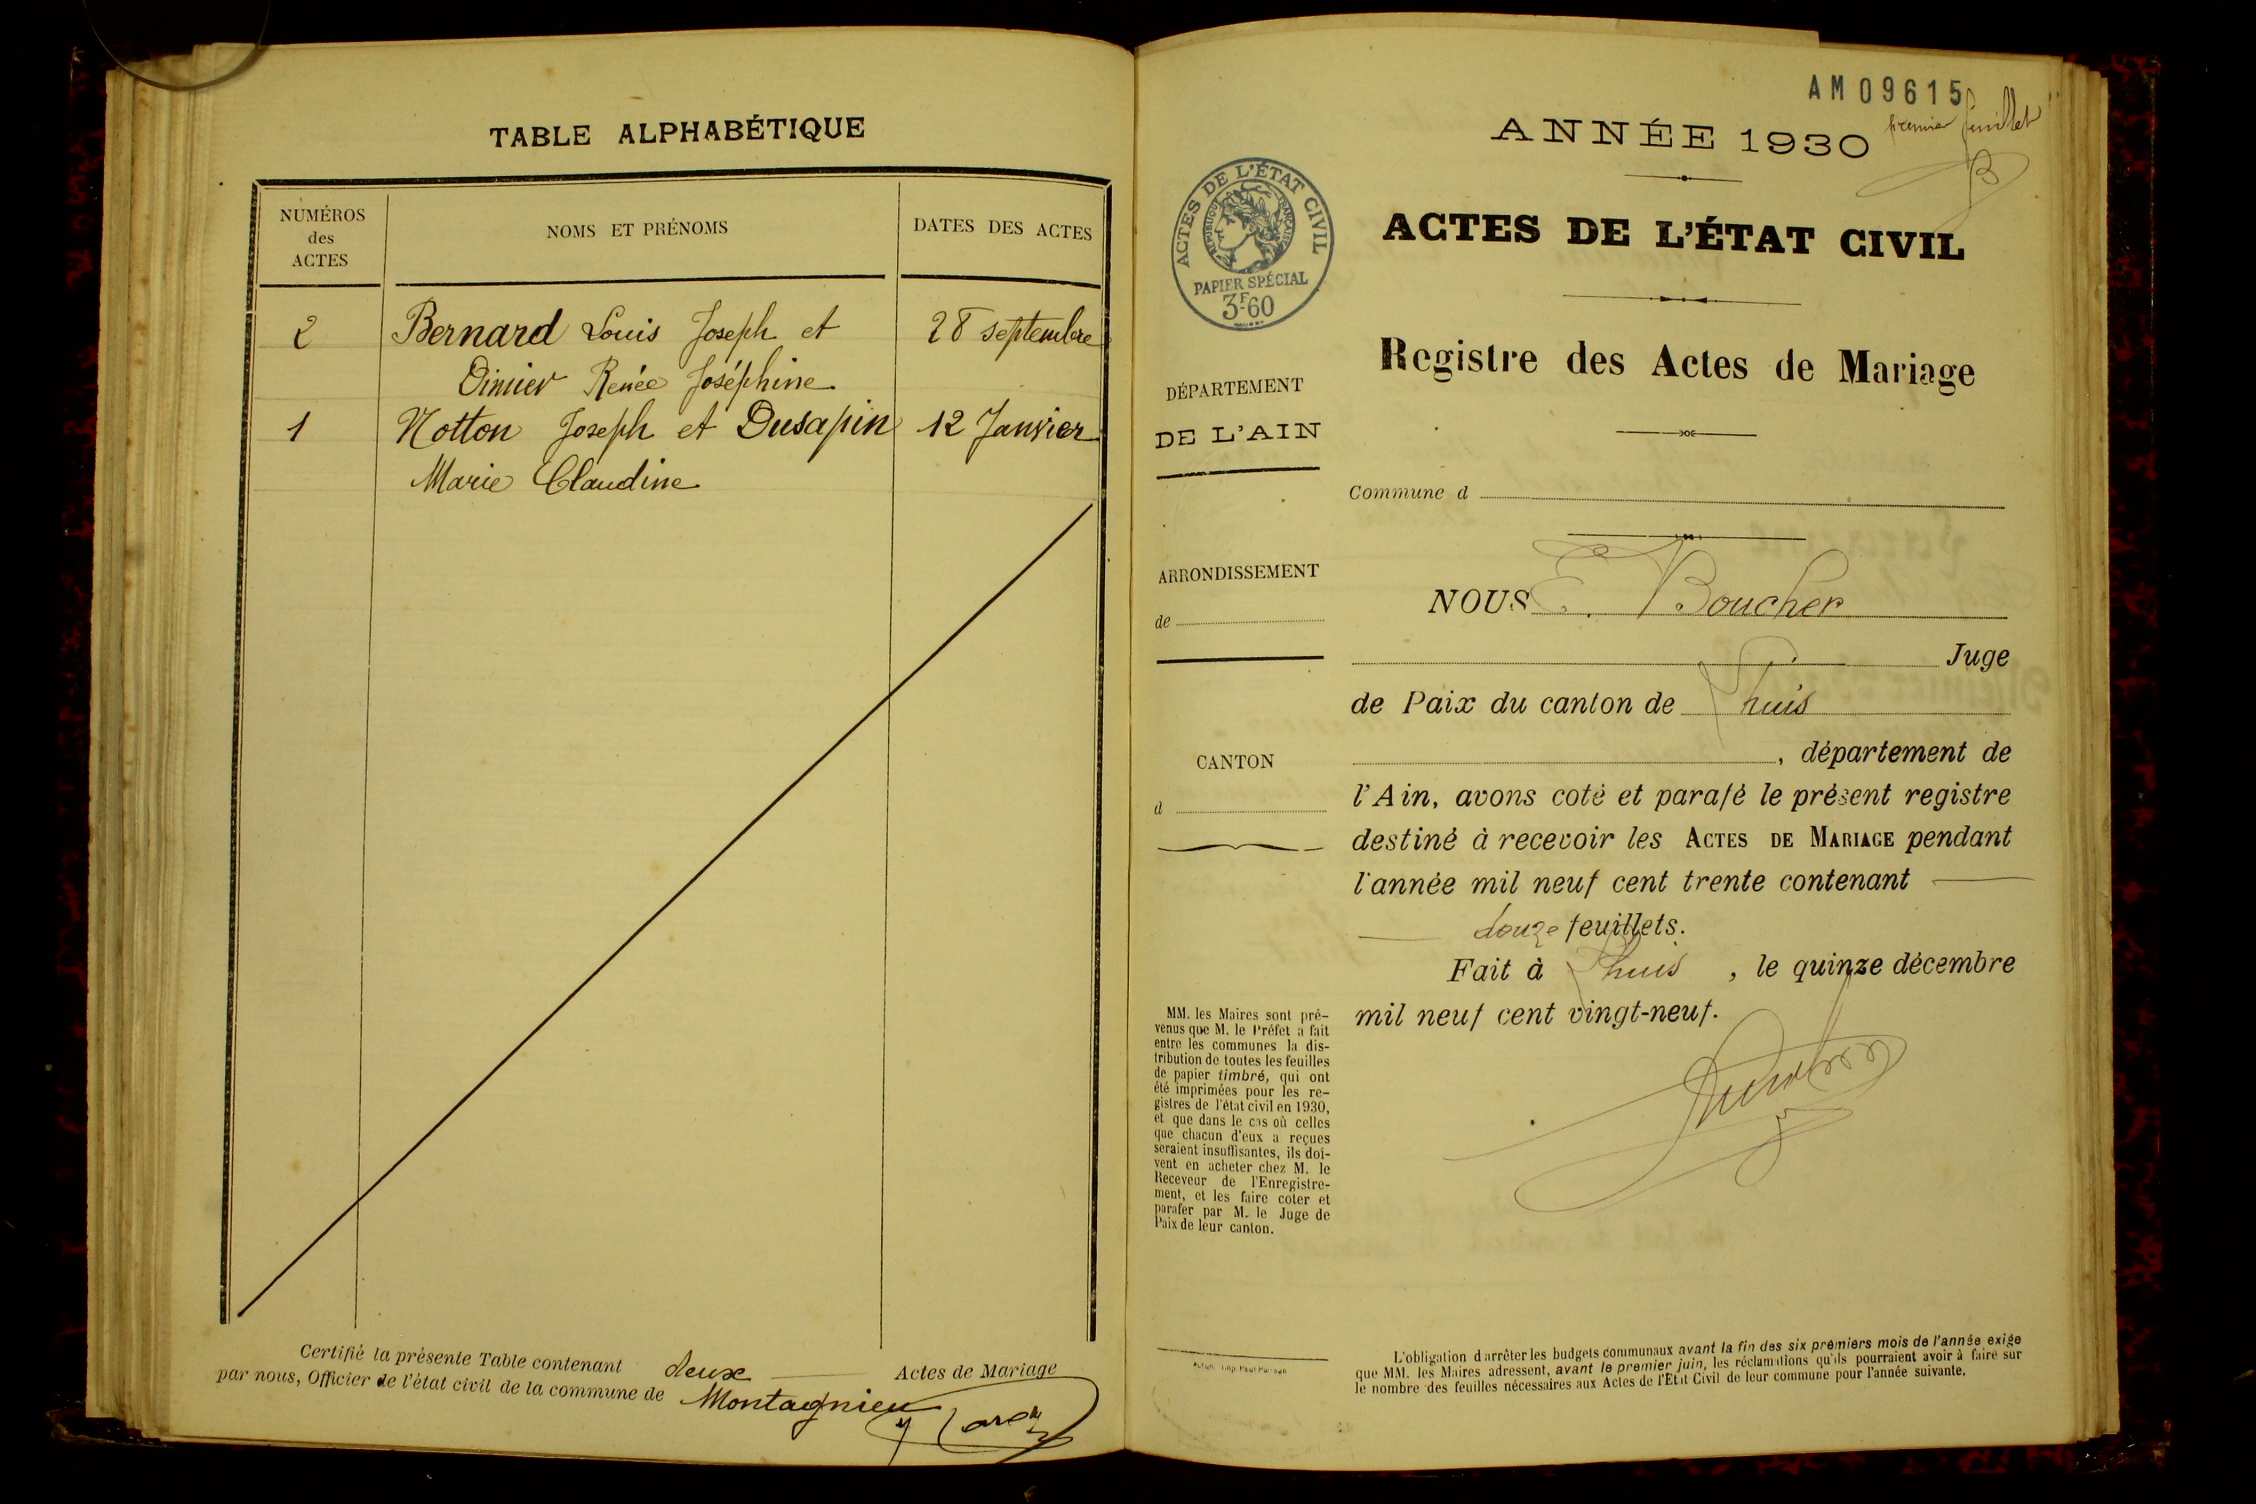 TABLE ALPHABÉTIQUE
NUMÉROS
des
ACTES
NOMS ET PRÉNOMS
DATES DES ACTES
2 Bernard Louis Joseph et 28 septembre
Dimier Renée Joséphine
1 Notton Joseph et Dusapin 12 Janvier
Marie Claudine
Certifié la présente Table contenant deux Actes de Mariage
par nous, Officier de l'état civil de la commune de Montagnieu
AM09615
premier feuillet
ANNÉE 1930
ACTES DE L'ÉTAT CIVIL
RÉPUBLIQUE FRANÇAISE
PAPIER SPÉCIAL
3F60
ACTES DE L'ÉTAT CIVIL
Registre des Actes de Mariage
DÉPARTEMENT
DE L'AIN
Commune d
ARRONDISSEMENT
de
CANTON
d
NOUS E. Boucher
Juge
de Paix du canton de Lhuis
, département de
l'Ain, avons coté et parafé le présent registre
destiné à recevoir les ACTES DE MARIAGE pendant
l'année mil neuf cent trente contenant
douze feuillets.
Fait à Lhuis , le quinze décembre
mil neuf cent vingt-neuf.
MM. les Maires sont pré-
venus que M. le Préfet a fait
entre les communes la dis-
tribution de toutes les feuilles
de papier timbré, qui ont
été imprimées pour les re-
gistres de l'état civil en 1930,
et que dans le cas où celles
que chacun d'eux a reçues
seraient insuffisantes, ils doi-
vent en acheter chez M. le
Receveur de l'Enregistre-
ment, et les faire coter et
parafer par M. le Juge de
Paix de leur canton.
L'obligation d'arrêter les budgets communaux avant la fin des six premiers mois de l'année exige
que MM. les Maires adressent, avant le premier juin, les réclamations qu'ils pourraient avoir à faire sur
le nombre des feuilles nécessaires aux Actes de l'Etat Civil de leur commune pour l'année suivante.